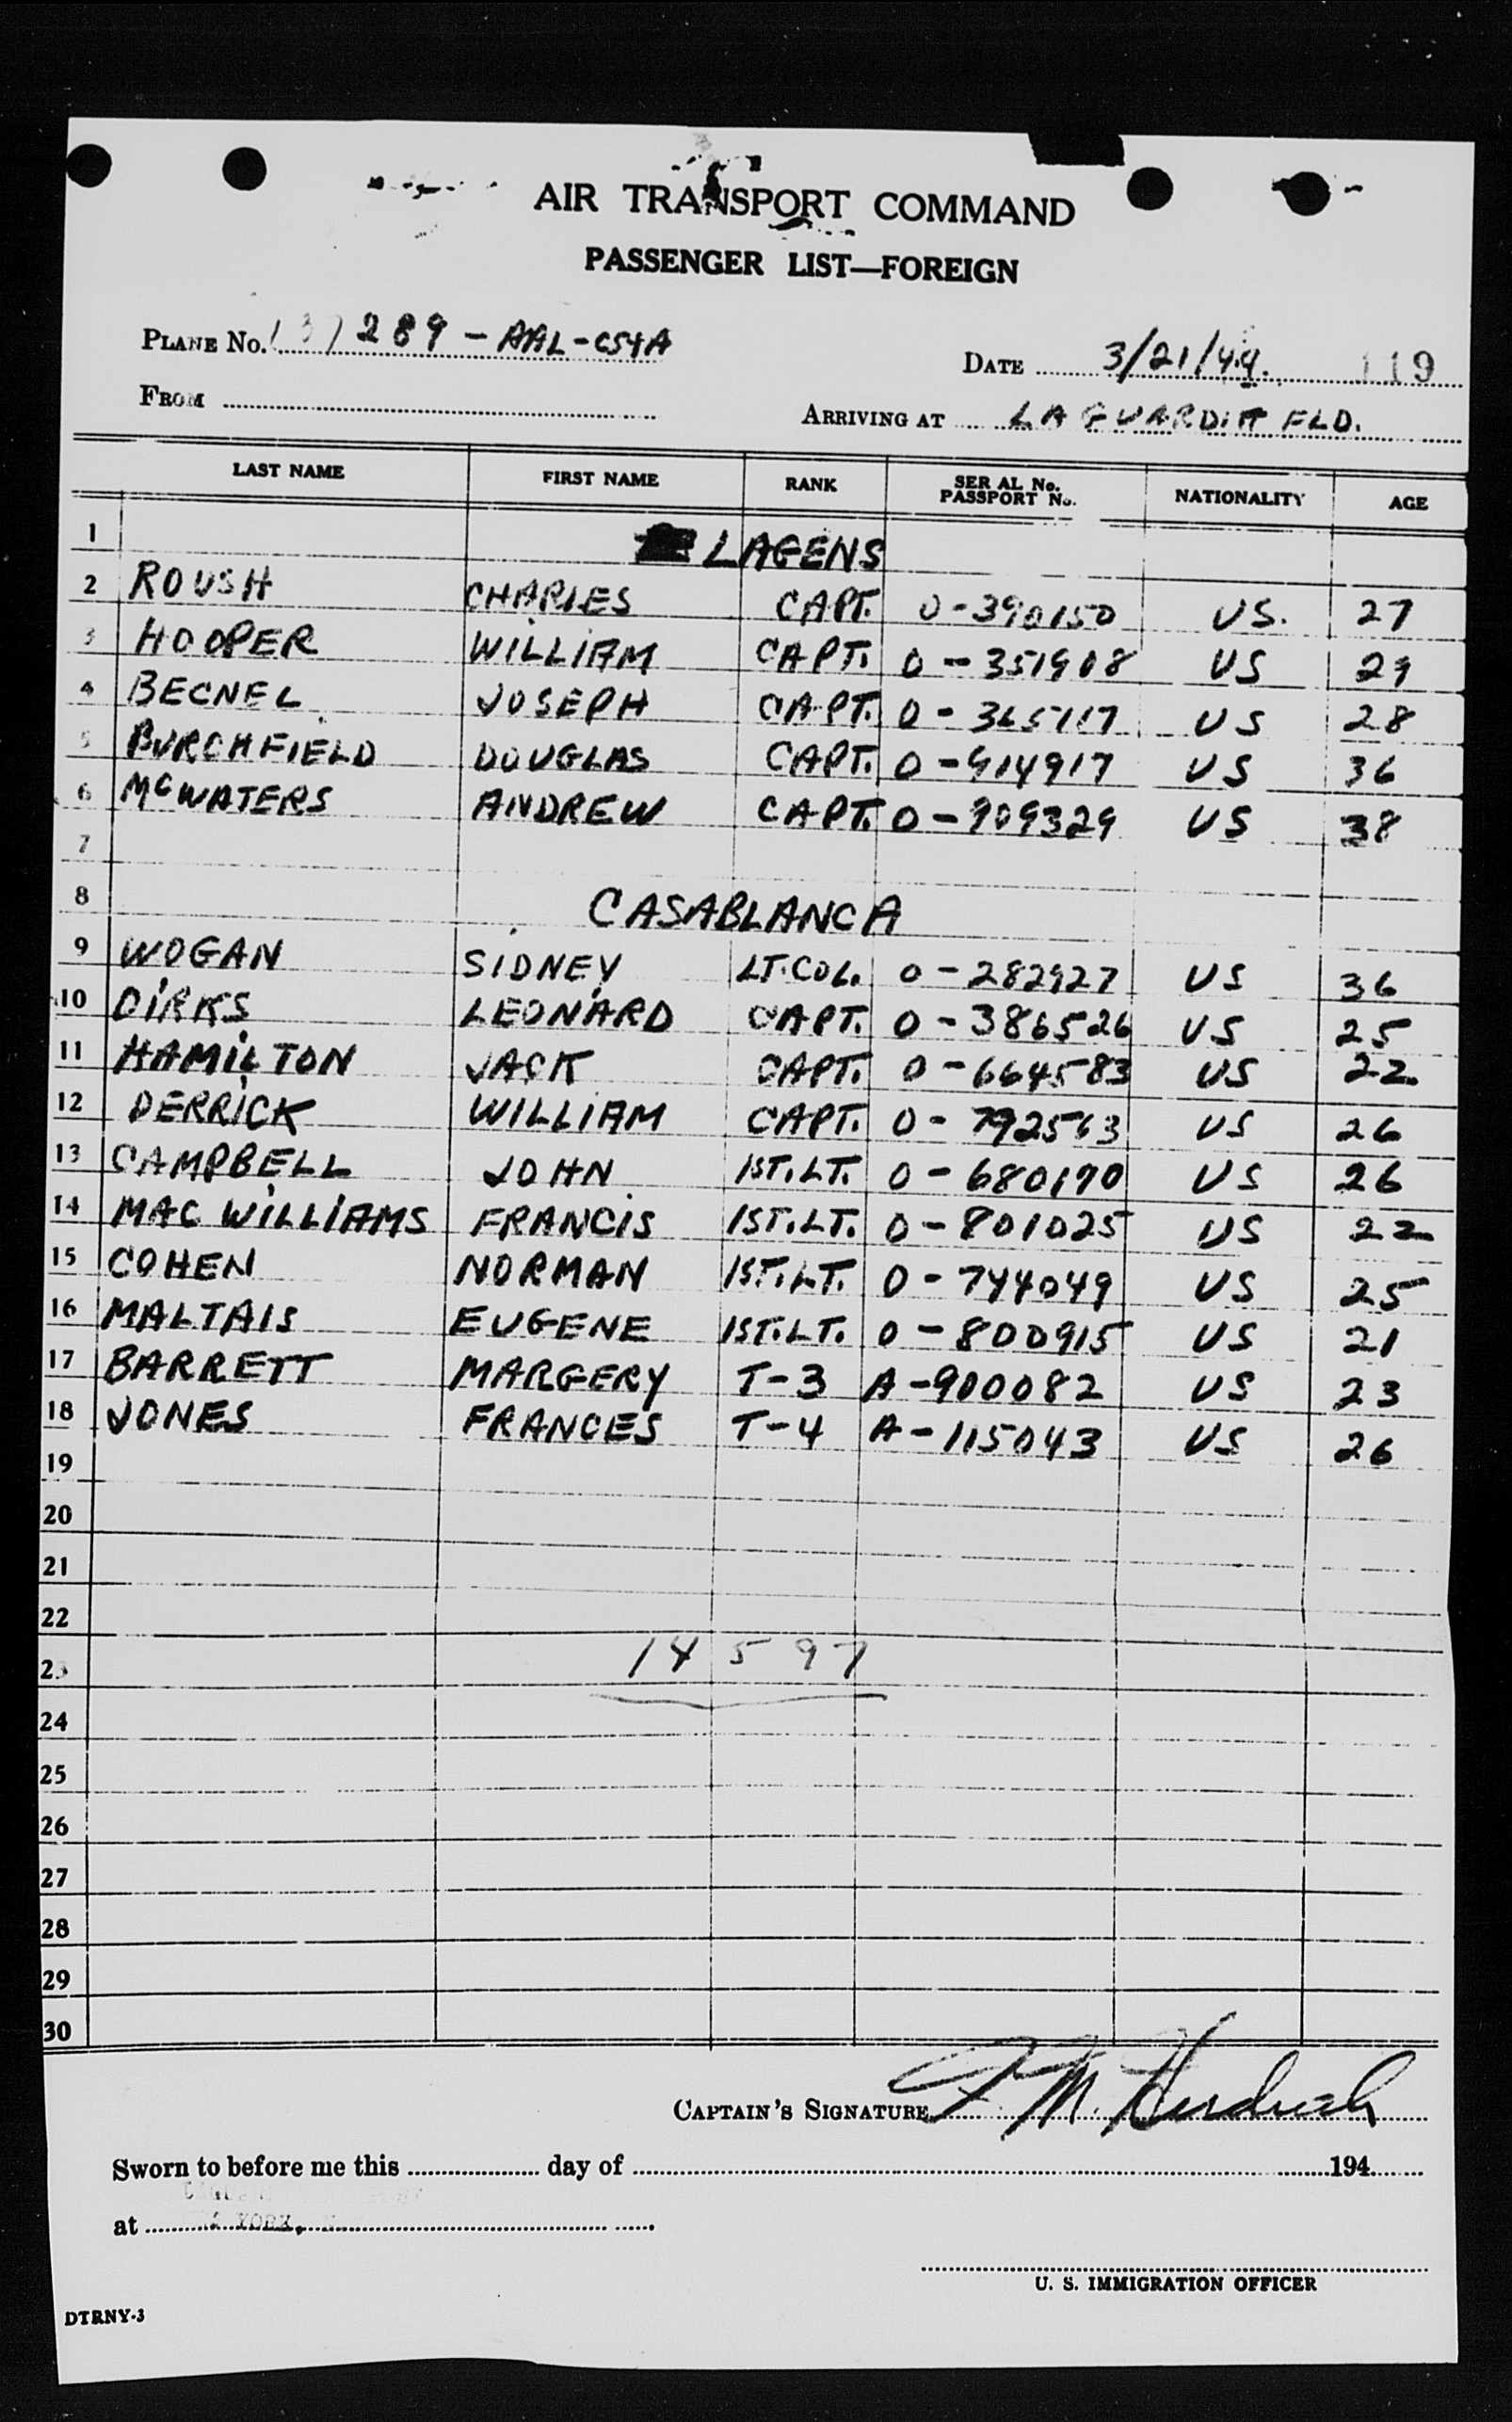 AIR TRANSPORT COMMAND
PASSENGER LIST—FOREIGN
PLANE No. 289 - AAL - C54A
DATE 3/21/44. 119
FROM
ARRIVING AT LA GUARDIA FLD.
LAST NAME FIRST NAME RANK SER AL No. PASSPORT No. NATIONALITY AGE
1 LAGENS
2 ROUSH CHARLES CAPT. O-390150 US. 27
3 HOOPER WILLIAM CAPT. O-351908 US 29
4 BECNEL JOSEPH CAPT. O-365117 US 28
5 BURCHFIELD DOUGLAS CAPT. O-914917 US 36
6 McWATERS ANDREW CAPT. O-909329 US 38
7
8 CASABLANCA
9 WOGAN SIDNEY LT.COL. O-282927 US 36
10 DIRKS LEONARD CAPT. O-386526 US 25
11 HAMILTON JACK CAPT. O-664583 US 22
12 DERRICK WILLIAM CAPT. O-792563 US 26
13 CAMPBELL JOHN 1ST.LT. O-680170 US 26
14 MAC WILLIAMS FRANCIS 1ST.LT. O-801025 US 22
15 COHEN NORMAN 1ST.LT. O-744049 US 25
16 MALTAIS EUGENE 1ST.LT. O-800915 US 21
17 BARRETT MARGERY T-3 A-900082 US 23
18 JONES FRANCES T-4 A-115043 US 26
19
20
21
22
23 14597
24
25
26
27
28
29
30
CAPTAIN'S SIGNATURE F. M.
Sworn to before me this day of 194
at YORK,
U. S. IMMIGRATION OFFICER
DTRNY-3